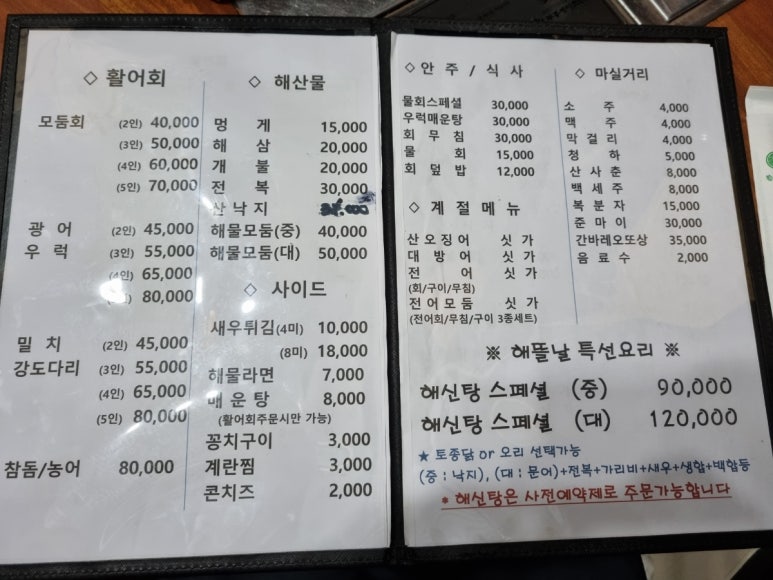 ◇ 활어회
모둠회 (2인) 40,000
(3인) 50,000
(4인) 60,000
(5인) 70,000
광 어 (2인) 45,000
우 럭 (3인) 55,000
(4인) 65,000
80,000
밀 치 (2인) 45,000
강도다리 (3인) 55,000
(4인) 65,000
(5인) 80,000
참돔/농어 80,000
◇ 해산물
멍 게 15,000
해 삼 20,000
개 불 20,000
전 복 30,000
산 낙 지
해물모둠(중) 40,000
해물모둠(대) 50,000
◇ 사이드
새우튀김(4미) 10,000
(8미) 18,000
해물라면 7,000
매 운 탕 8,000
(활어회주문시만 가능)
꽁치구이 3,000
계란찜 3,000
콘치즈 2,000
◇ 안 주 / 식 사
물회스페셜 30,000
우럭매운탕 30,000
회 무 침 30,000
물 회 15,000
회 덮 밥 12,000
◇ 계 절 메 뉴
산 오 징 어 싯 가
대 방 어 싯 가
전 어 싯 가
(회/구이/무침)
전 어 모 둠 싯 가
(전어회/무침/구이 3종세트)
◇ 마실거리
소 주 4,000
맥 주 4,000
막 걸 리 4,000
청 하 5,000
산 사 춘 8,000
백 세 주 8,000
복 분 자 15,000
준 마 이 30,000
간바레오또상 35,000
음 료 수 2,000
※ 해뜰날 특선요리 ※
해신탕 스페셜 (중) 90,000
해신탕 스페셜 (대) 120,000
★ 토종닭 or 오리 선택가능
(중 : 낙지), (대 : 문어)+전복+가리비+새우+생합+백합등
* 해신탕은 사전예약제로 주문가능합니다